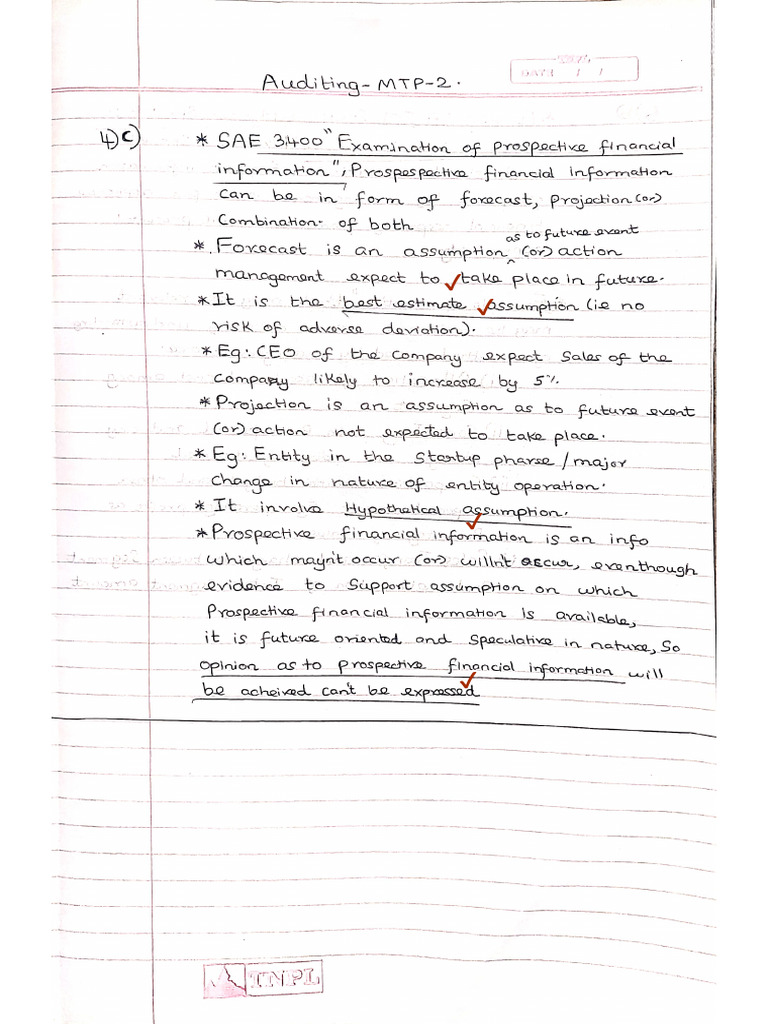 Auditing-MTP-2.
DATE / /
4)C) * SAE 3400 "Examination of prospective financial
information", Prospespective financial information
can be in form of forecast, projection (or)
Combination of both
as to future event
* Forecast is an assumption ^ (or) action
management expect to take place in future.
* It is the best estimate assumption (i.e no
risk of adverse deviation).
* Eg: CEO of the company expect sales of the
company likely to increase by 5%.
* Projection is an assumption as to future event
(or) action not expected to take place.
* Eg: Entity in the startup pharse / major
change in nature of entity operation.
* It involve Hypothetical assumption.
* Prospective financial information is an info
which mayn't occur (or) willn't occur, eventhough
evidence to support assumption on which
Prospective financial information is available,
it is future oriented and speculative in nature, So
opinion as to prospective financial information will
be acheived can't be expressed
TNPL